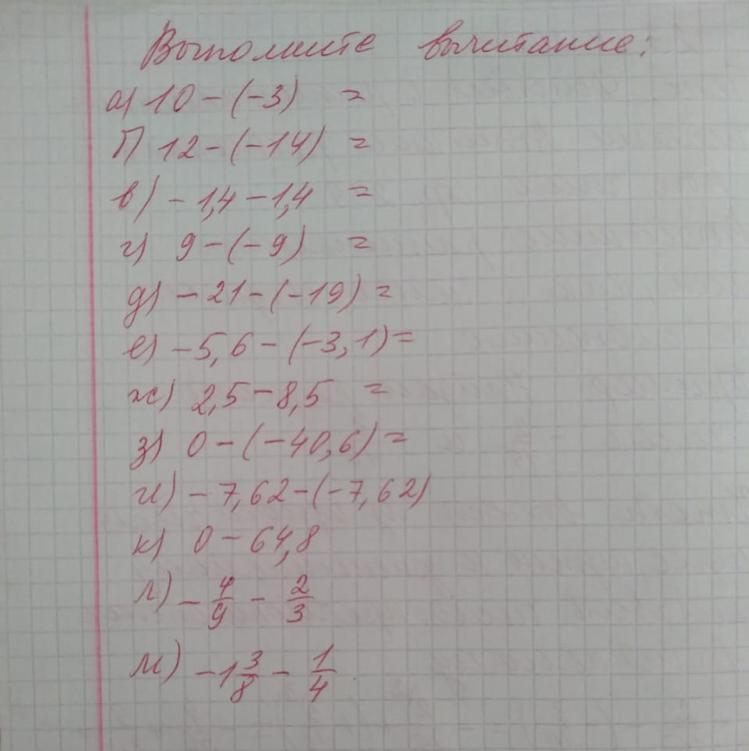 Выполните вычитание:
а) 10 - (-3) =
б) 12 - (-14) =
в) - 1,4 - 1,4 =
г) 9 - (-9) =
д) - 21 - (-19) =
е) - 5,6 - (-3,1) =
ж) 2,5 - 8,5 =
з) 0 - (-40,6) =
и) - 7,62 - (-7,62)
к) 0 - 64,8
л) - 4/9 - 2/3
м) - 1 3/8 - 1/4